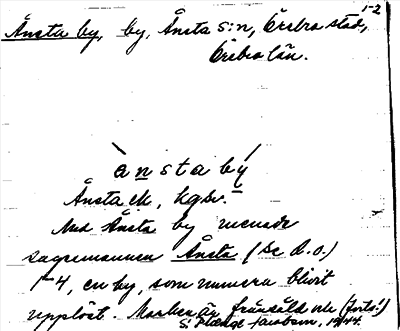 1-2
Ånsta by, by, Ånsta s:n, Örebro stad,
Örebro län.
ànsta bý
Ånsta ek, hgdr.
Med Ånsta by menade
sagesmannen Ånsta (Se d.o.)
1-4, en by, som numera blivit
upplöst. Marken är frånsåld och (forts.)
1944.